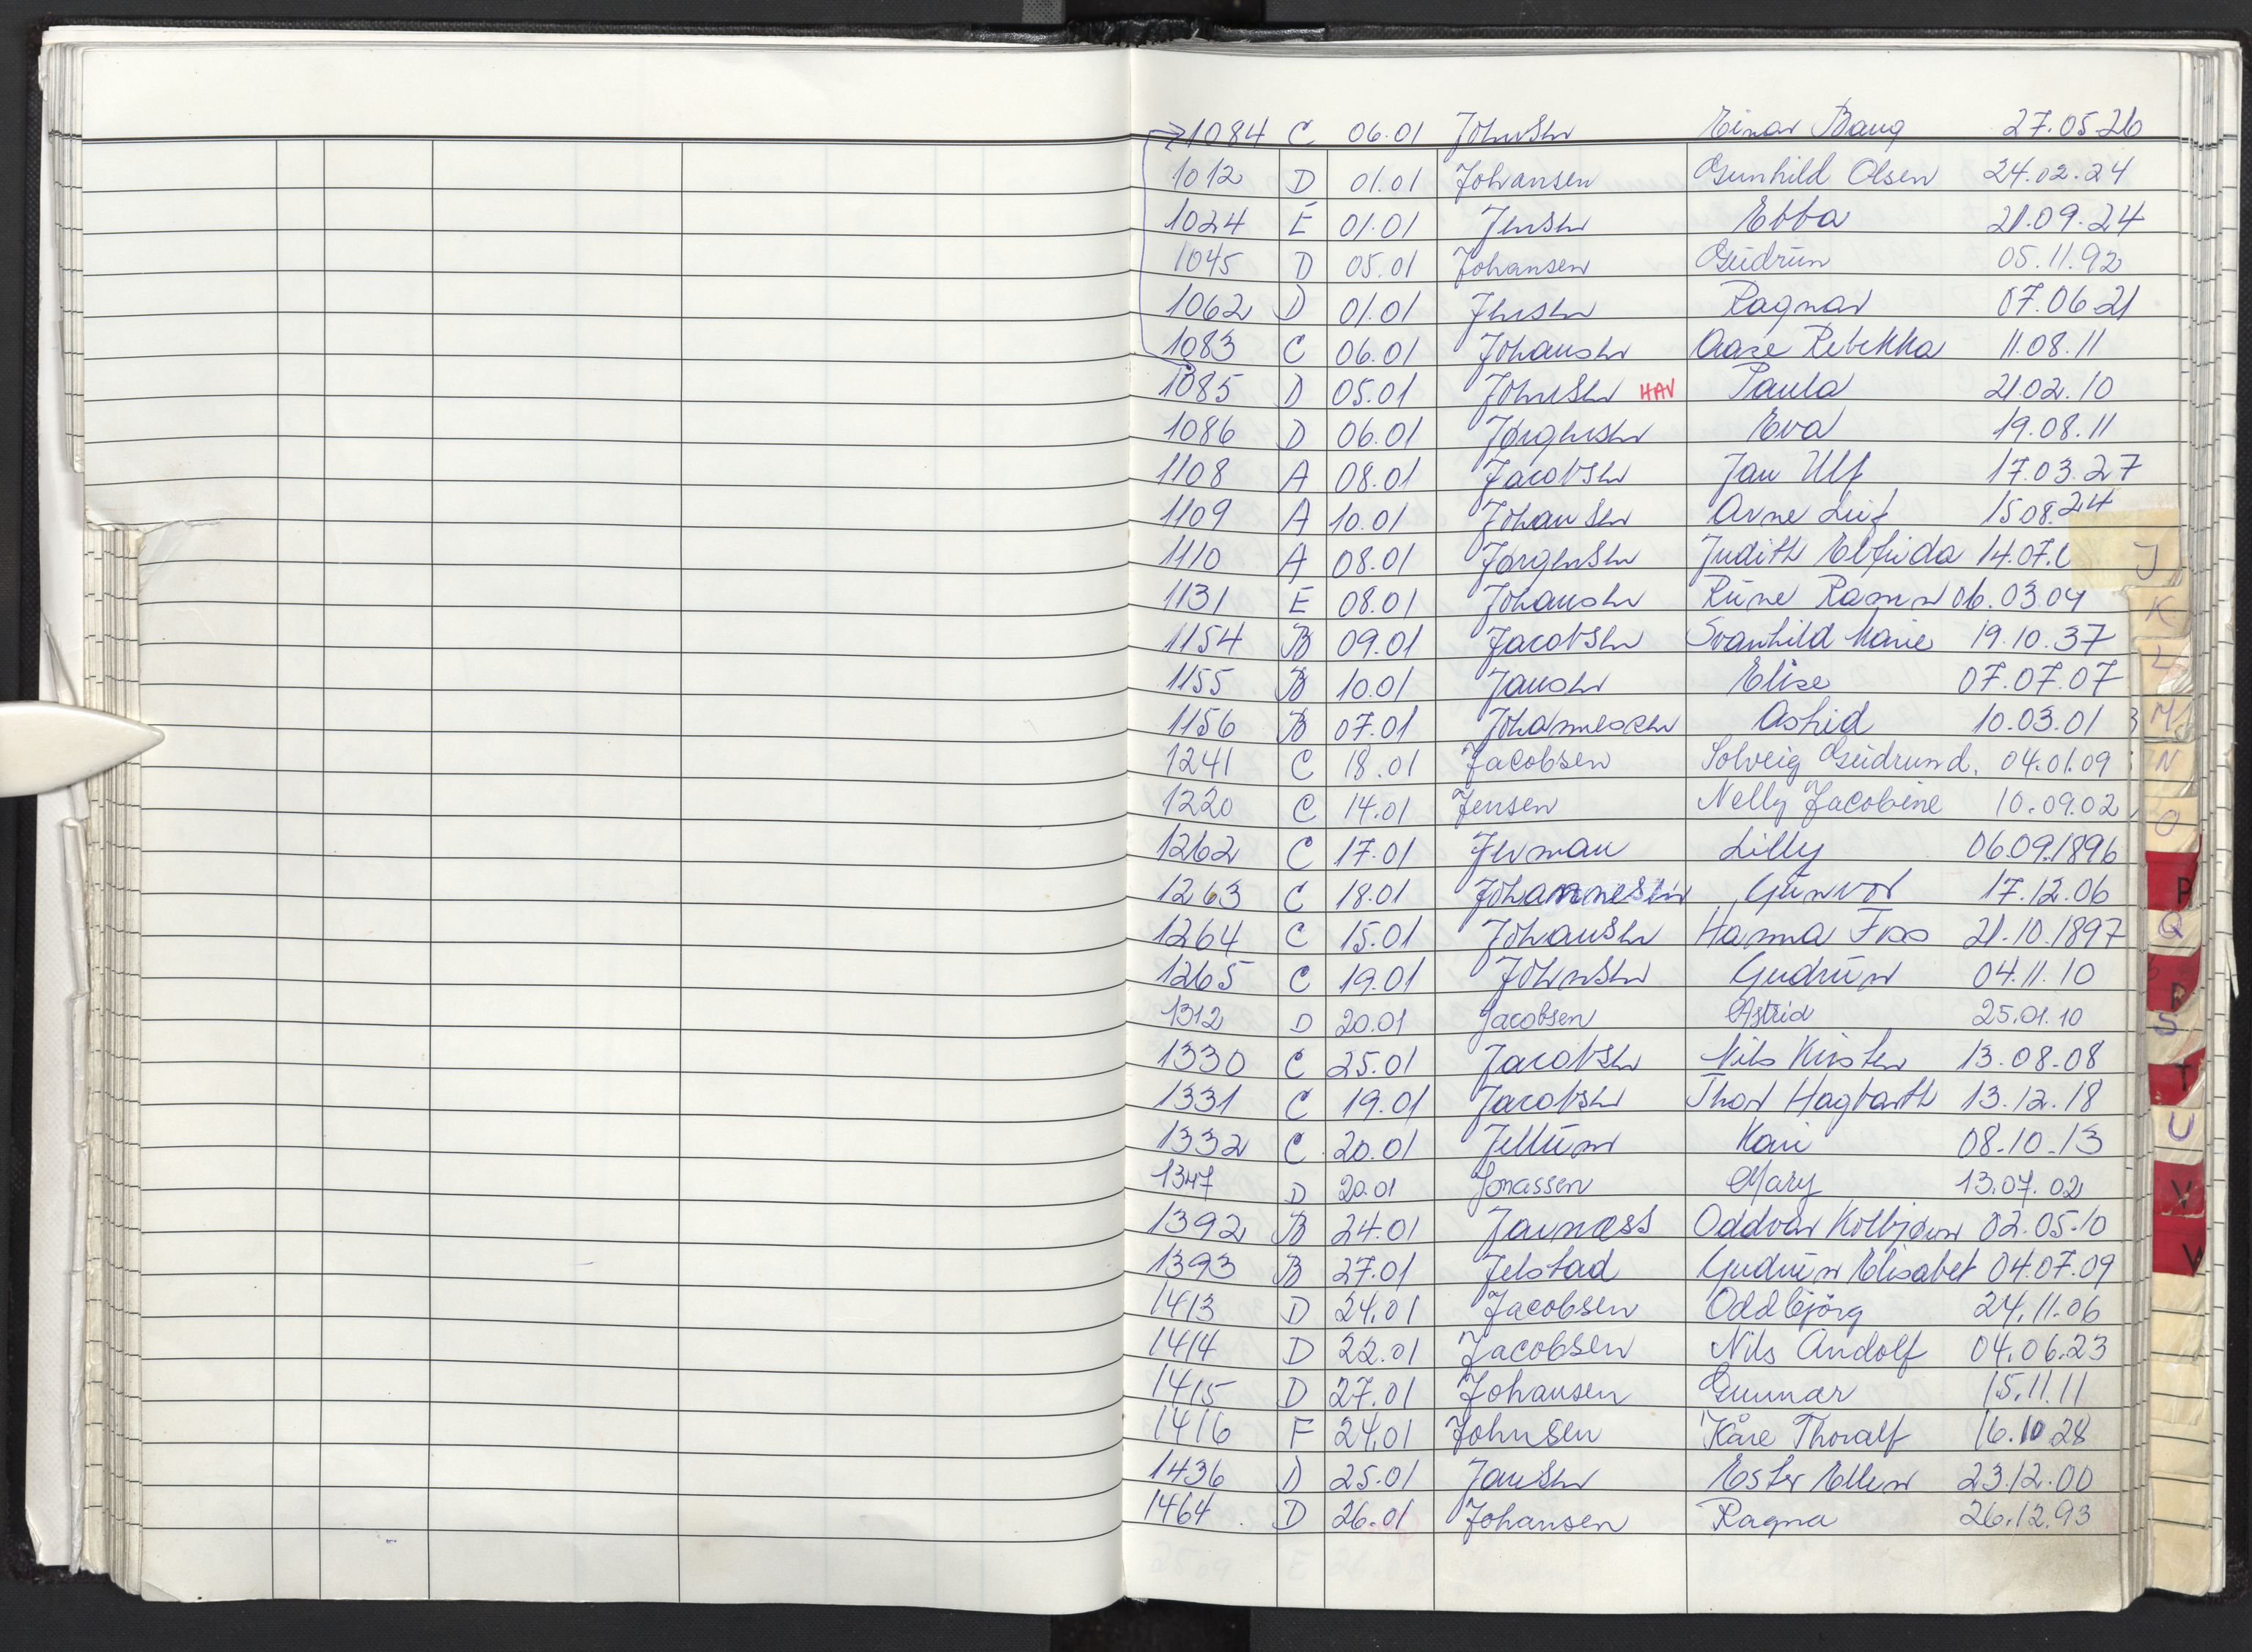 →1084 C 06.01 Johnsen Einar Bang 27.05.26
1012 D 01.01 Johansen Gunhild Olsen 24.02.24
1024 E 01.01 Jensen Ebba 21.09.24
1045 D 05.01 Johansen Gudrun 05.11.92
1062 D 01.01 Jensen Ragnar 07.06.21
1083 C 06.01 Johansen Aase Rebekka 11.08.11
1085 D 05.01 Johnsen HAV Paula 21.02.10
1086 D 06.01 Jørgensen Eva 19.08.11
1108 A 08.01 Jacobsen Jan Ulf 17.03.27
1109 A 10.01 Johansen Arne Leif 15.08.24
1110 A 08.01 Jørgensen Judith Elfrida 14.07.
J
1131 E 08.01 Johansen Rune Ramm 06.03.04
K
1154 B 09.01 Jacobsen Svanhild Marie 19.10.37
L
1155 B 10.01 Jansen Elise 07.07.07
1156 B 07.01 Johannessen Astrid 10.03.01
M
1241 C 18.01 Jacobsen Solveig Gudrund. 04.01.09
N
1220 C 14.01 Jensen Nelly Jacobine 10.09.02
O
1262 C 17.01 Jerman Lilly 06.09.1896
1263 C 18.01 Johannesen Gunvor 17.12.06
P
1264 C 15.01 Johansen Hanna Foss 21.10.1897
Q
1265 C 19.01 Johnsen Gudrun 04.11.10
R
1312 D 20.01 Jacobsen Astrid 25.01.10
S
1330 C 25.01 Jacobsen Nils Kirsten 13.08.08
T
1331 C 19.01 Jacobsen Thor Hagbarth 13.12.18
U
1332 C 20.01 Jellum Kari 08.10.13
1347 D 20.01 Jonassen Mary 13.07.02
V
1392 B 24.01 Jarnæss Oddvar Kolbjørn 02.05.10
W
1393 B 27.01 Jelstad Gudrun Elisabet 04.07.09
1413 D 24.01 Jacobsen Oddbjörg 24.11.06
1414 D 22.01 Jacobsen Nils Andolf 04.06.23
1415 D 27.01 Johansen Gunnar 15.11.11
1416 F 24.01 Johnsen Kåre Thoralf 16.10.28
1436 D 25.01 Jansen Ester Ellen 23.12.00
1464 D 26.01 Johansen Ragna 26.12.93